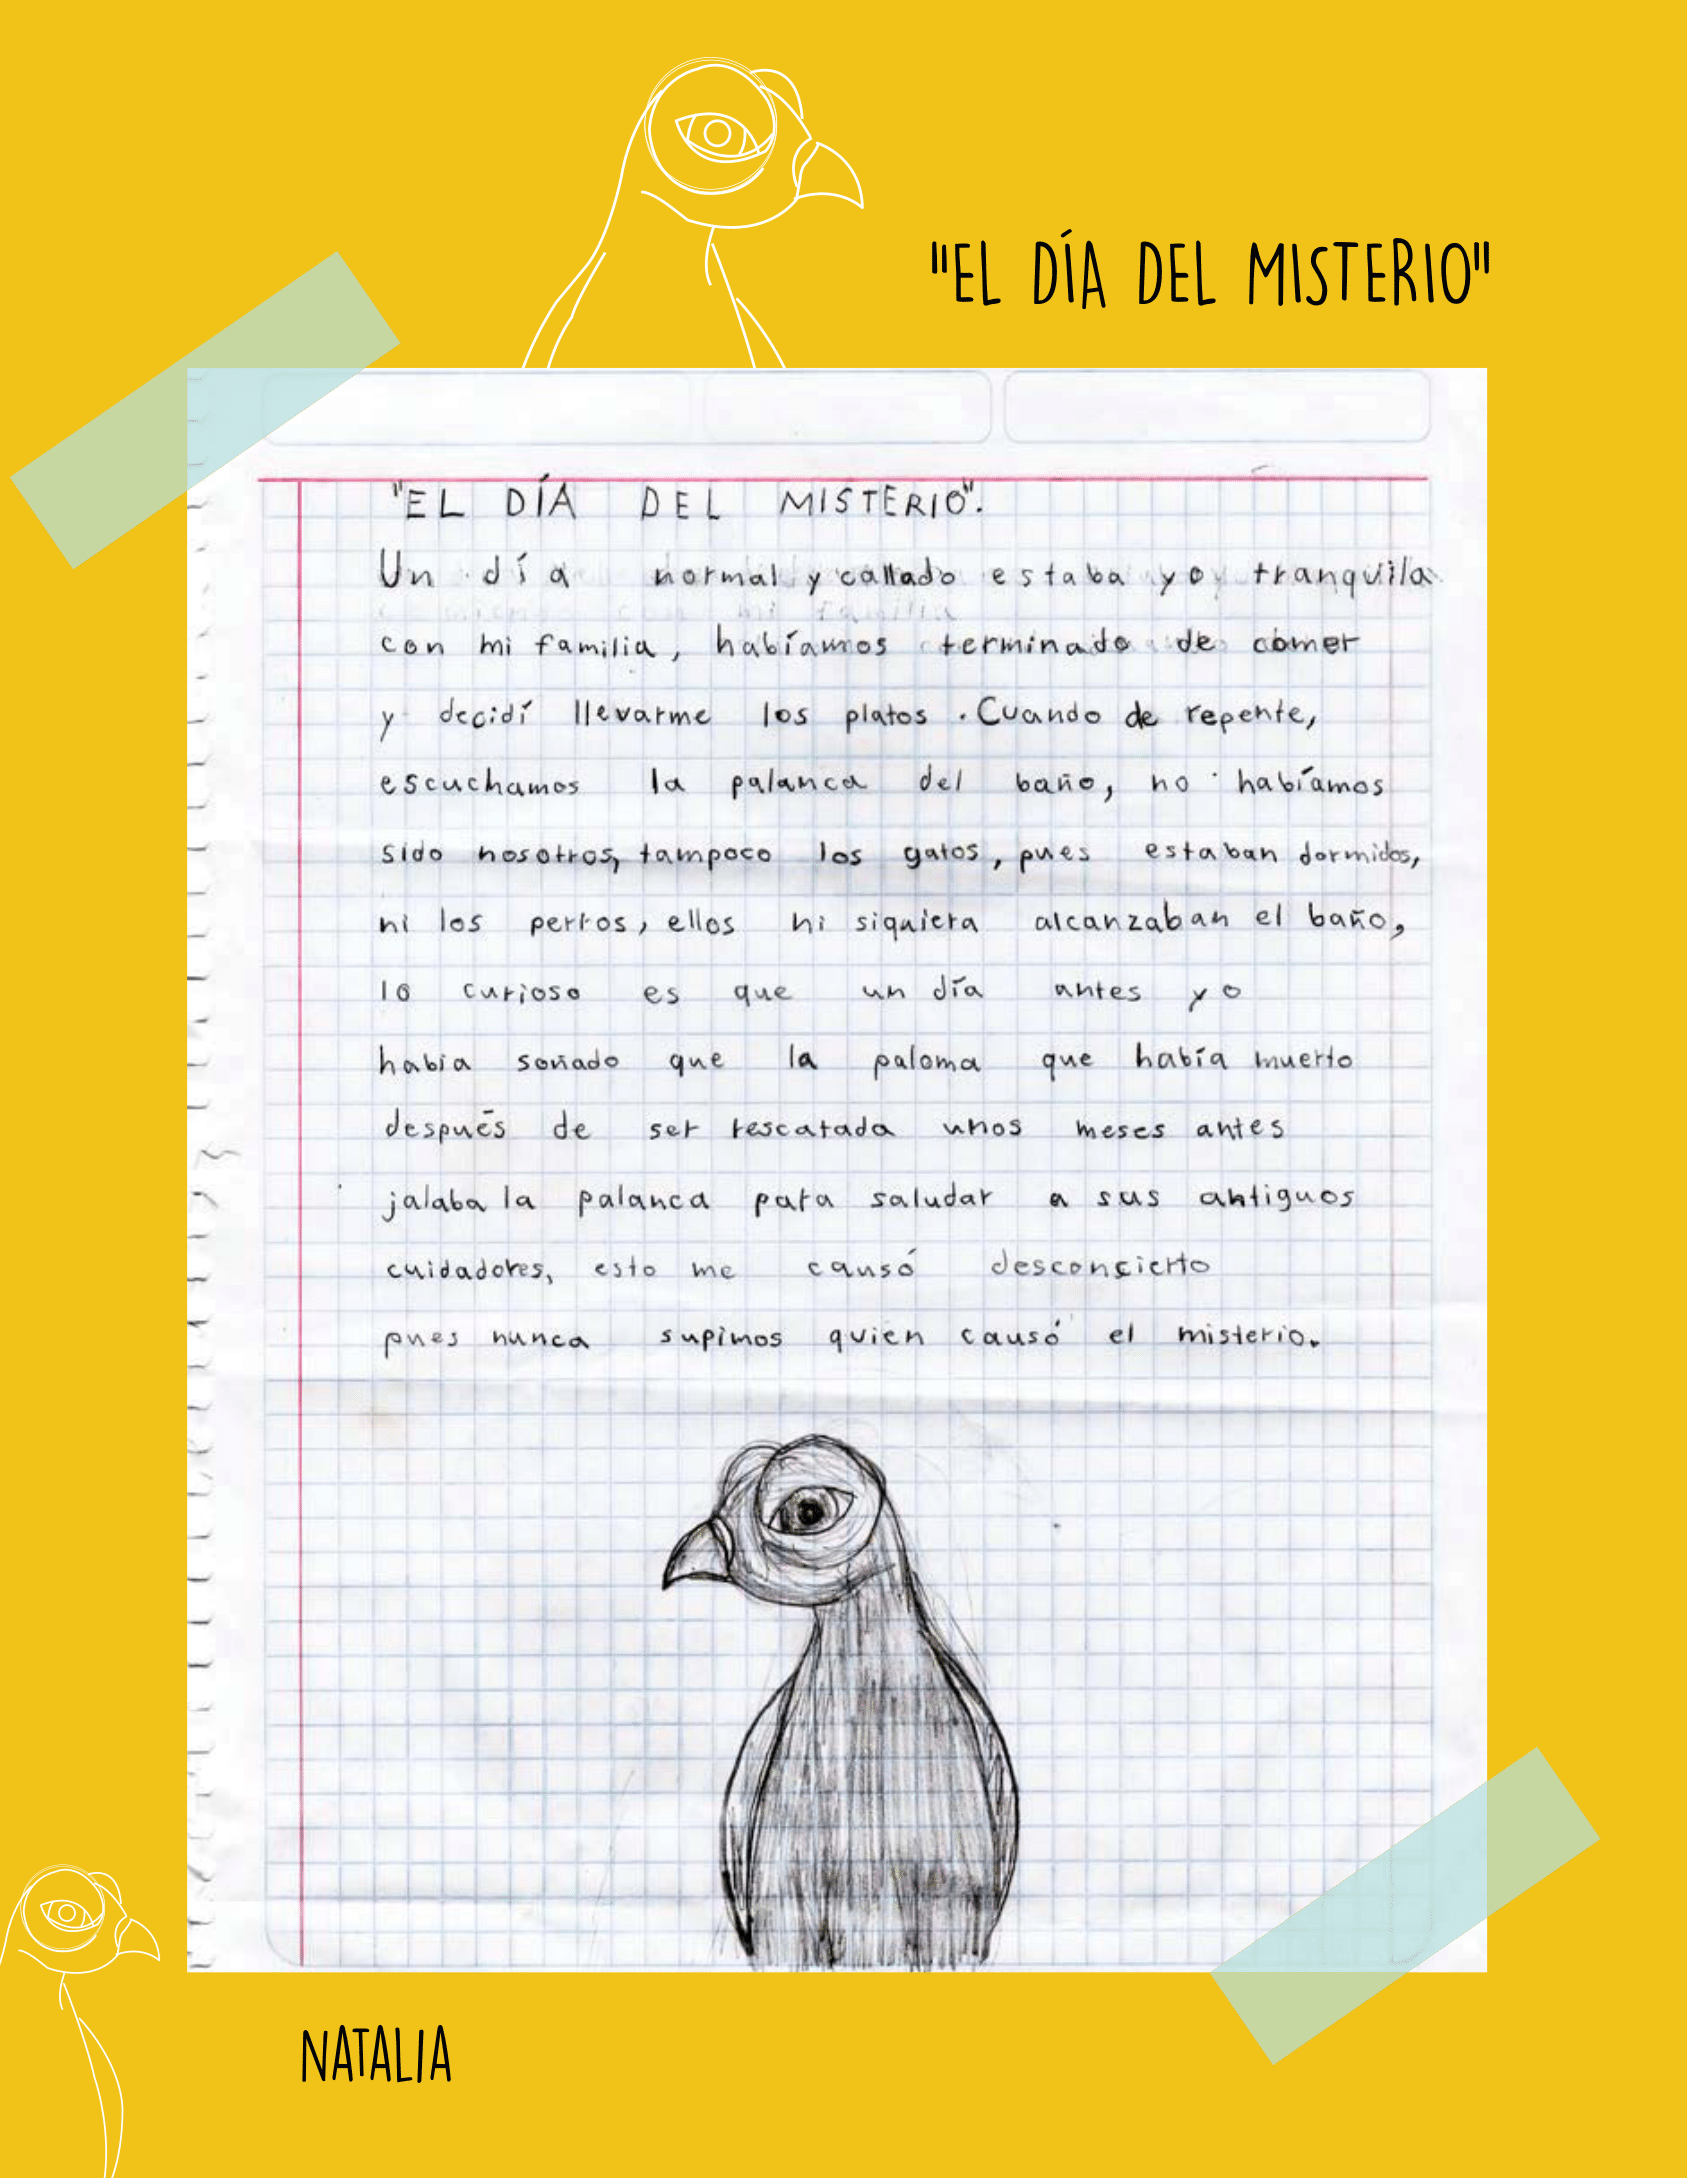 "EL DÍA DEL MISTERIO"
"EL DÍA DEL MISTERIO".
Un día normal y callado estaba yo tranquila
con mi familia, habíamos terminado de comer
y decidí llevarme los platos. Cuando de repente,
escuchamos la palanca del baño, no habíamos
sido nosotros, tampoco los gatos, pues estaban dormidos,
ni los perros, ellos ni siquiera alcanzaban el baño,
lo curioso es que un día antes yo
habia soñado que la paloma que había muerto
después de ser rescatada unos meses antes
jalaba la palanca para saludar a sus antiguos
cuidadores, esto me causó desconcierto
pues nunca supimos quien causó el misterio.
NATALIA